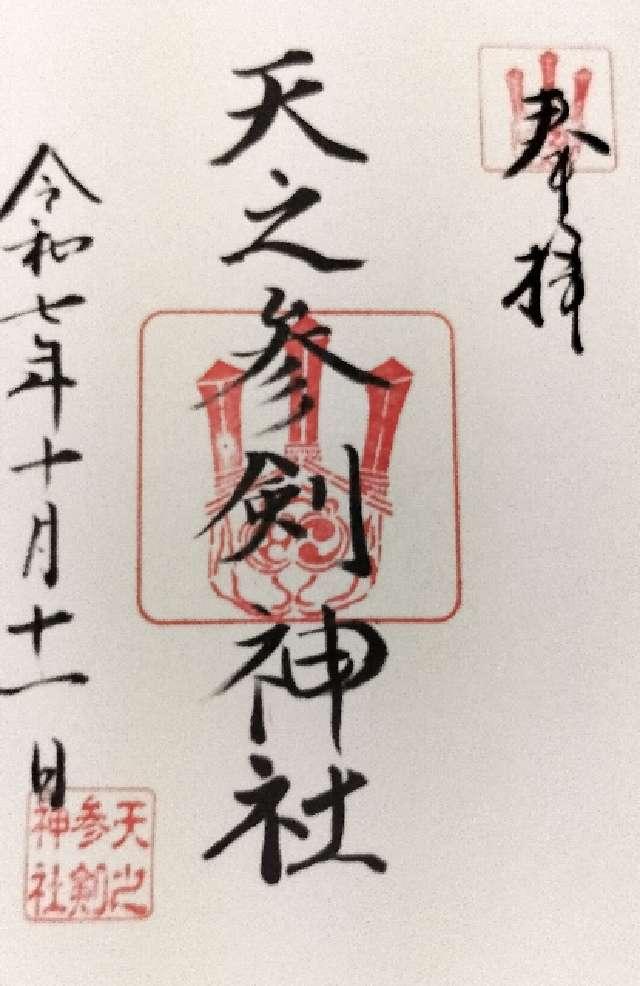 奉拝
天之参剣神社
令和七年十月十一日
天之
参剣
神社